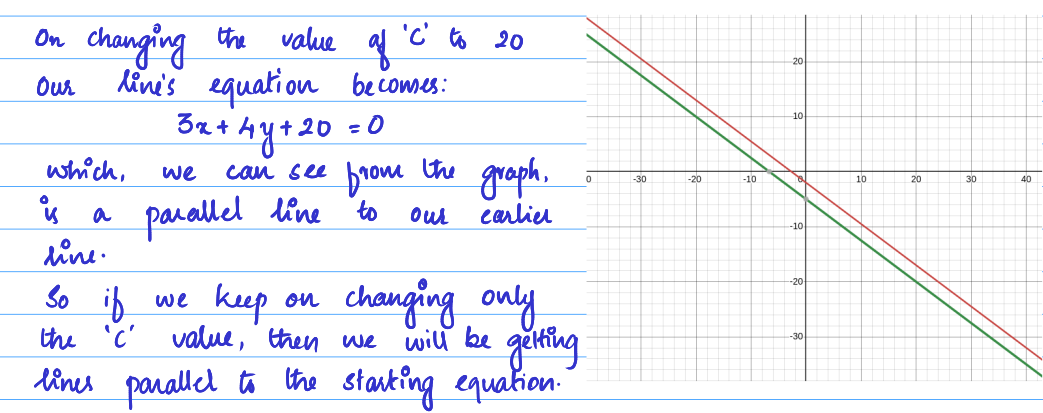 On changing the value of 'C' to 20
Our line's equation becomes:
3x + 4y + 20 = 0
which, we can see from the graph,
is a parallel line to our earlier
line.
So if we keep on changing only
the 'C' value, then we will be getting
lines parallel to the starting equation.
20
10
0 -30 -20 -10 0 10 20 30 40
-10
-20
-30